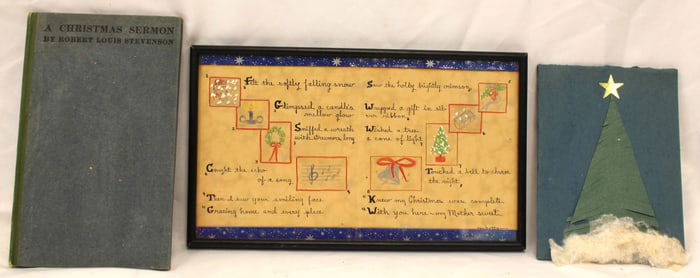 A CHRISTMAS SERMON
BY ROBERT LOUIS STEVENSON
Felt the softly falling snow
Glimpsed a candle's
mellow glow
Sniffed a wreath
with streamers long
Caught the echo
of a song
Then I saw your smiling face
Gracing home and every place
Saw the holly brightly crimson
Wrapped a gift in sil-
ver ribbon
Wished a tree
a cone of light
Touched a bell to charm
the night
Knew my Christmas was complete
With you here - my Mother sweet